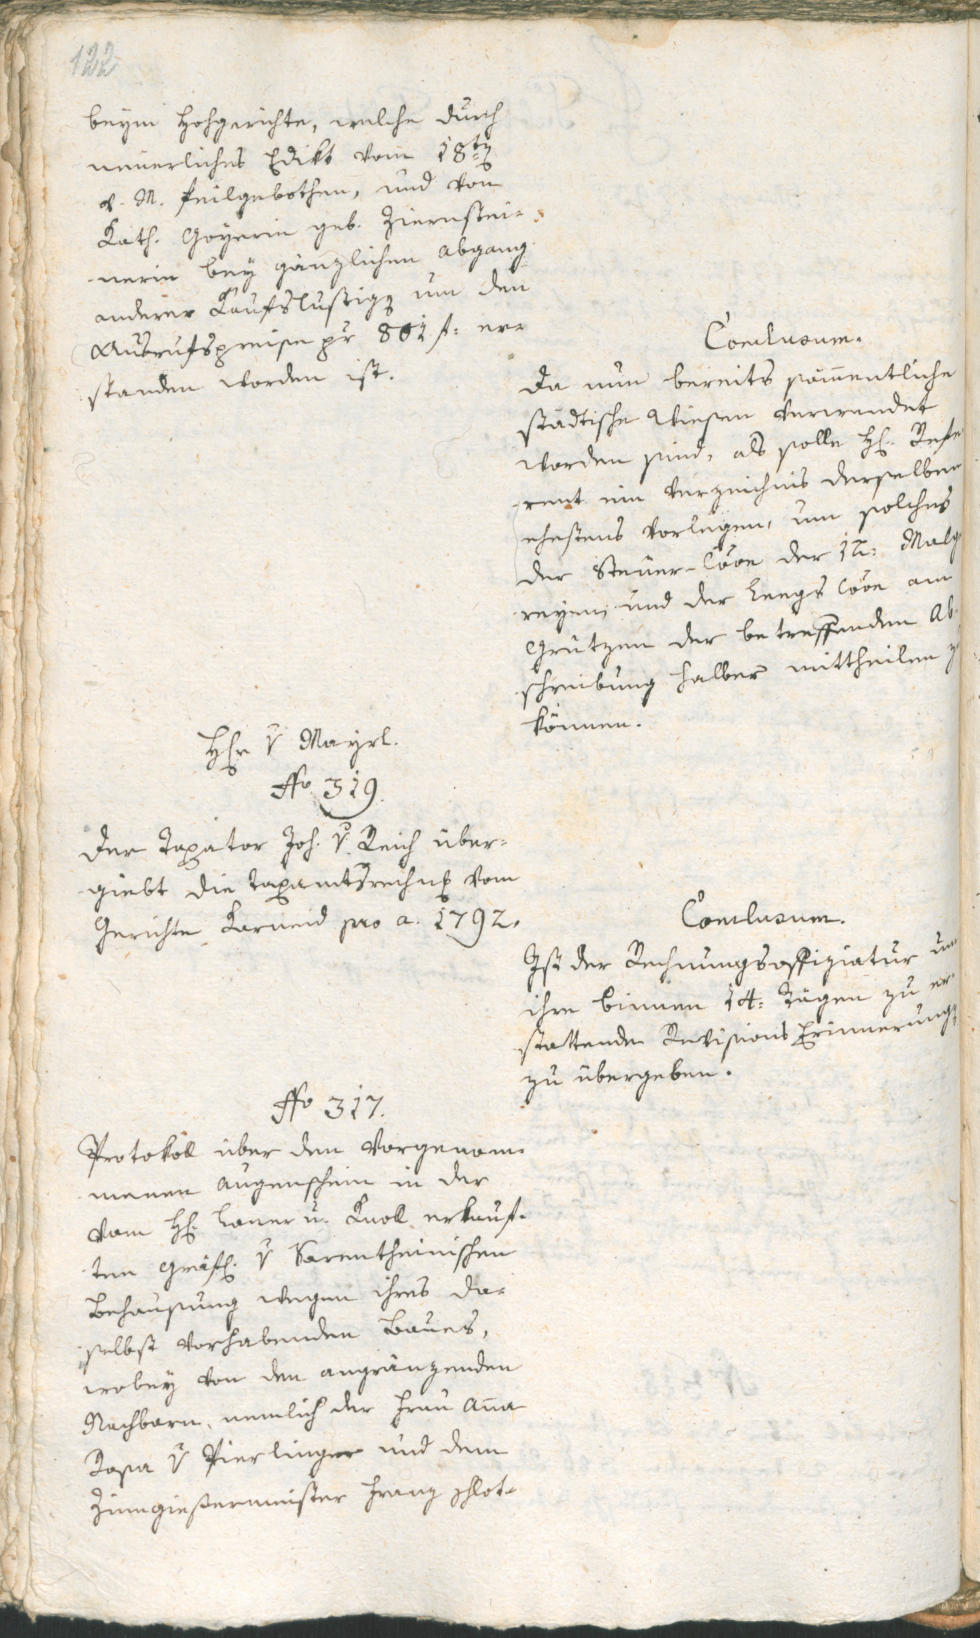 122
beym Hochgerichte, welche durch
neuerliches Edikt vom 18ten
v. M. feilgebothen, und von
Kath. Goyerin geb. Ziernstei-
nerin bey gänzlichen Abgang
anderer Kaufslustigen um den
Ausrufspreise pr 801 f: er-
standen worden ist.
Conclusum.
Da nun bereits sammentliche
städtische Wiesen verwendet
worden sind, als solle H. Refe
rent ein Verzeichnis derselben
ehestens vorlegen, um solches
der Steuer-Coon der 12: Malg
reyen, und der Leegs Coon am
Grützen der betreffenden Ab
schreibung halber mittheilen z
können.
Hr. v Mayrl.
No 319.
Der Taxator Joh. v. Reich über-
giebt die Taxamtsrechng vom
Gerichte Karneid pro a. 1792.
Conclusum.
Ist der Rechnungsoffiziatur um
ihre binnen 14: Tägen zu er
stattende Revisions Erinnerung
zu übergeben.
No 317.
Protokoll über den vorgenom-
menen Augenschein in der
vom H. Laner u. Knoll erkauf-
ten Gräfl. v Sarentheinischen
Behausung wegen ihres da-
selbst vorhabenden Baues,
wobey von den angränzenden
Nachbarn, nemlich der Frau Anna
Rosa v Pierlinger und dem
Zinngießermeister Franz Plot-